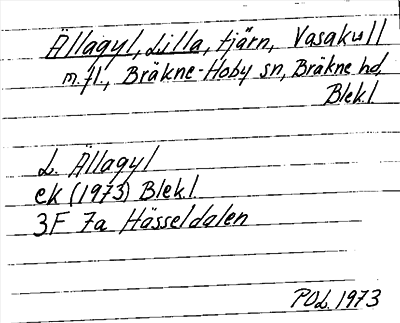 Ällagyl, Lilla, tjärn, Vasakull
m.fl., Bräkne-Hoby sn, Bräkne hd,
Blek.l
L. Ällagyl
ek (1973) Blek.l
3F 7a Hässeldalen
POL. 1973